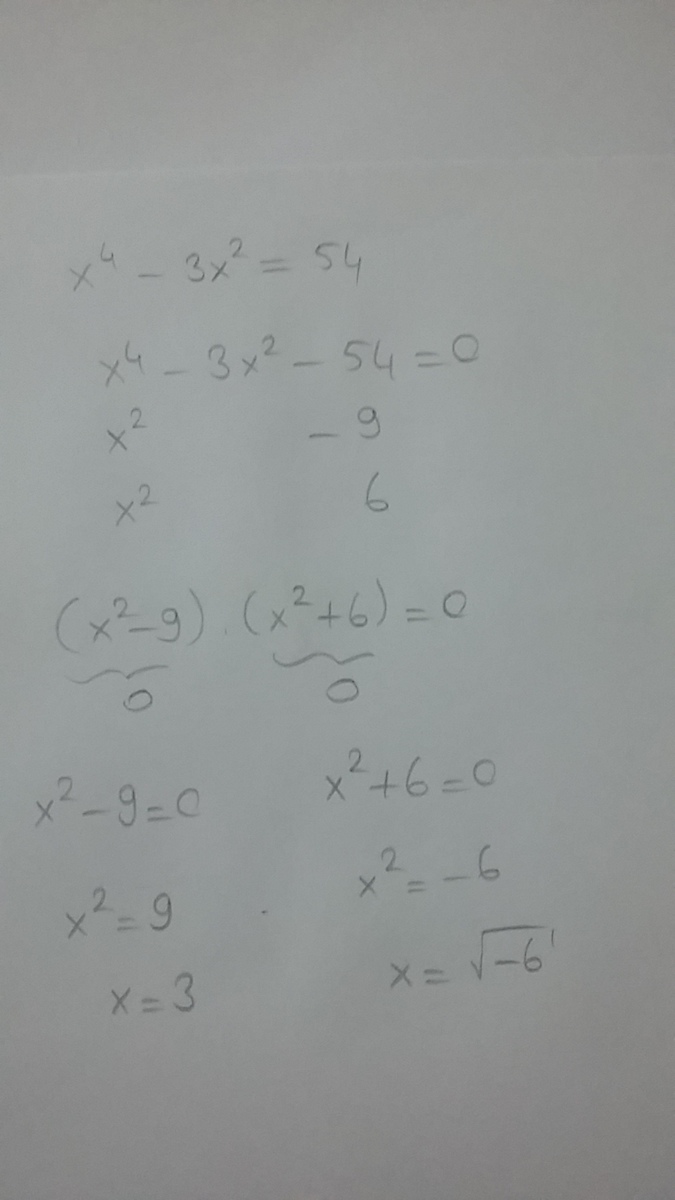 x⁴ - 3x² = 54
x⁴ - 3x² - 54 = 0
x² - 9
x² 6
(x²-9) . (x²+6) = 0
0 0
x² - 9 = 0 x² + 6 = 0
x² = 9 x² = -6
x = 3 x = √-6